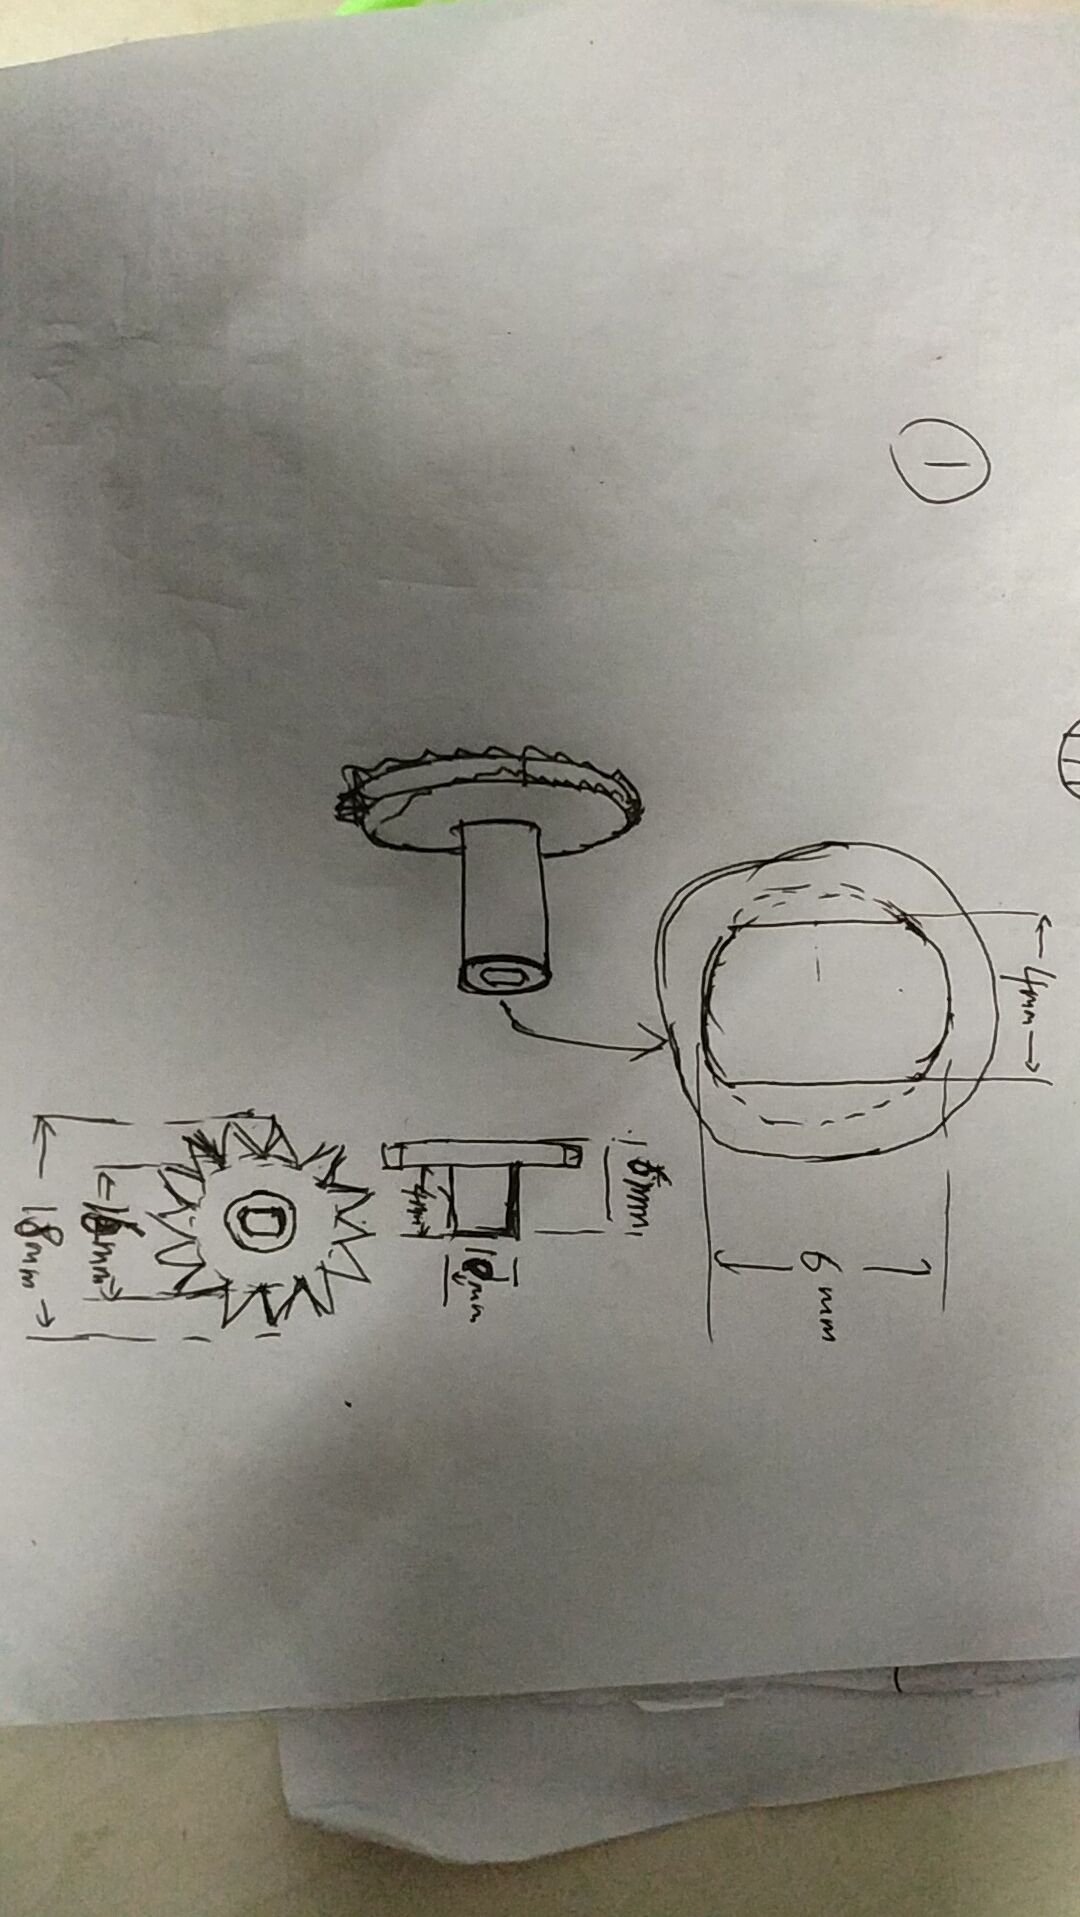 4mm
1
6mm
6mm
10mm
4mm
16mm
18mm